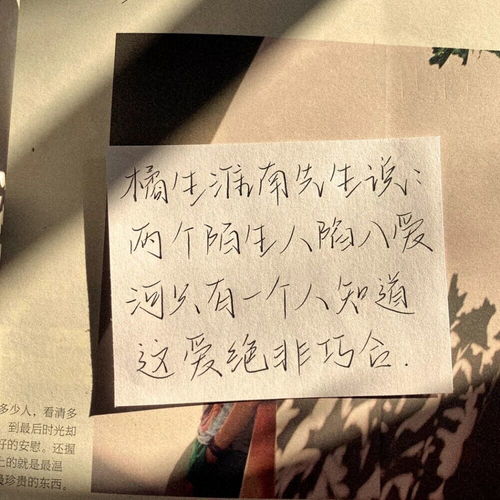 橘生淮南先生说:
两个陌生人陷入爱
河只有一个人知道
这爱绝非巧合.
多少人，看清多
到最后时光却
好的安慰。还握
上的就是最温
最珍贵的东西。